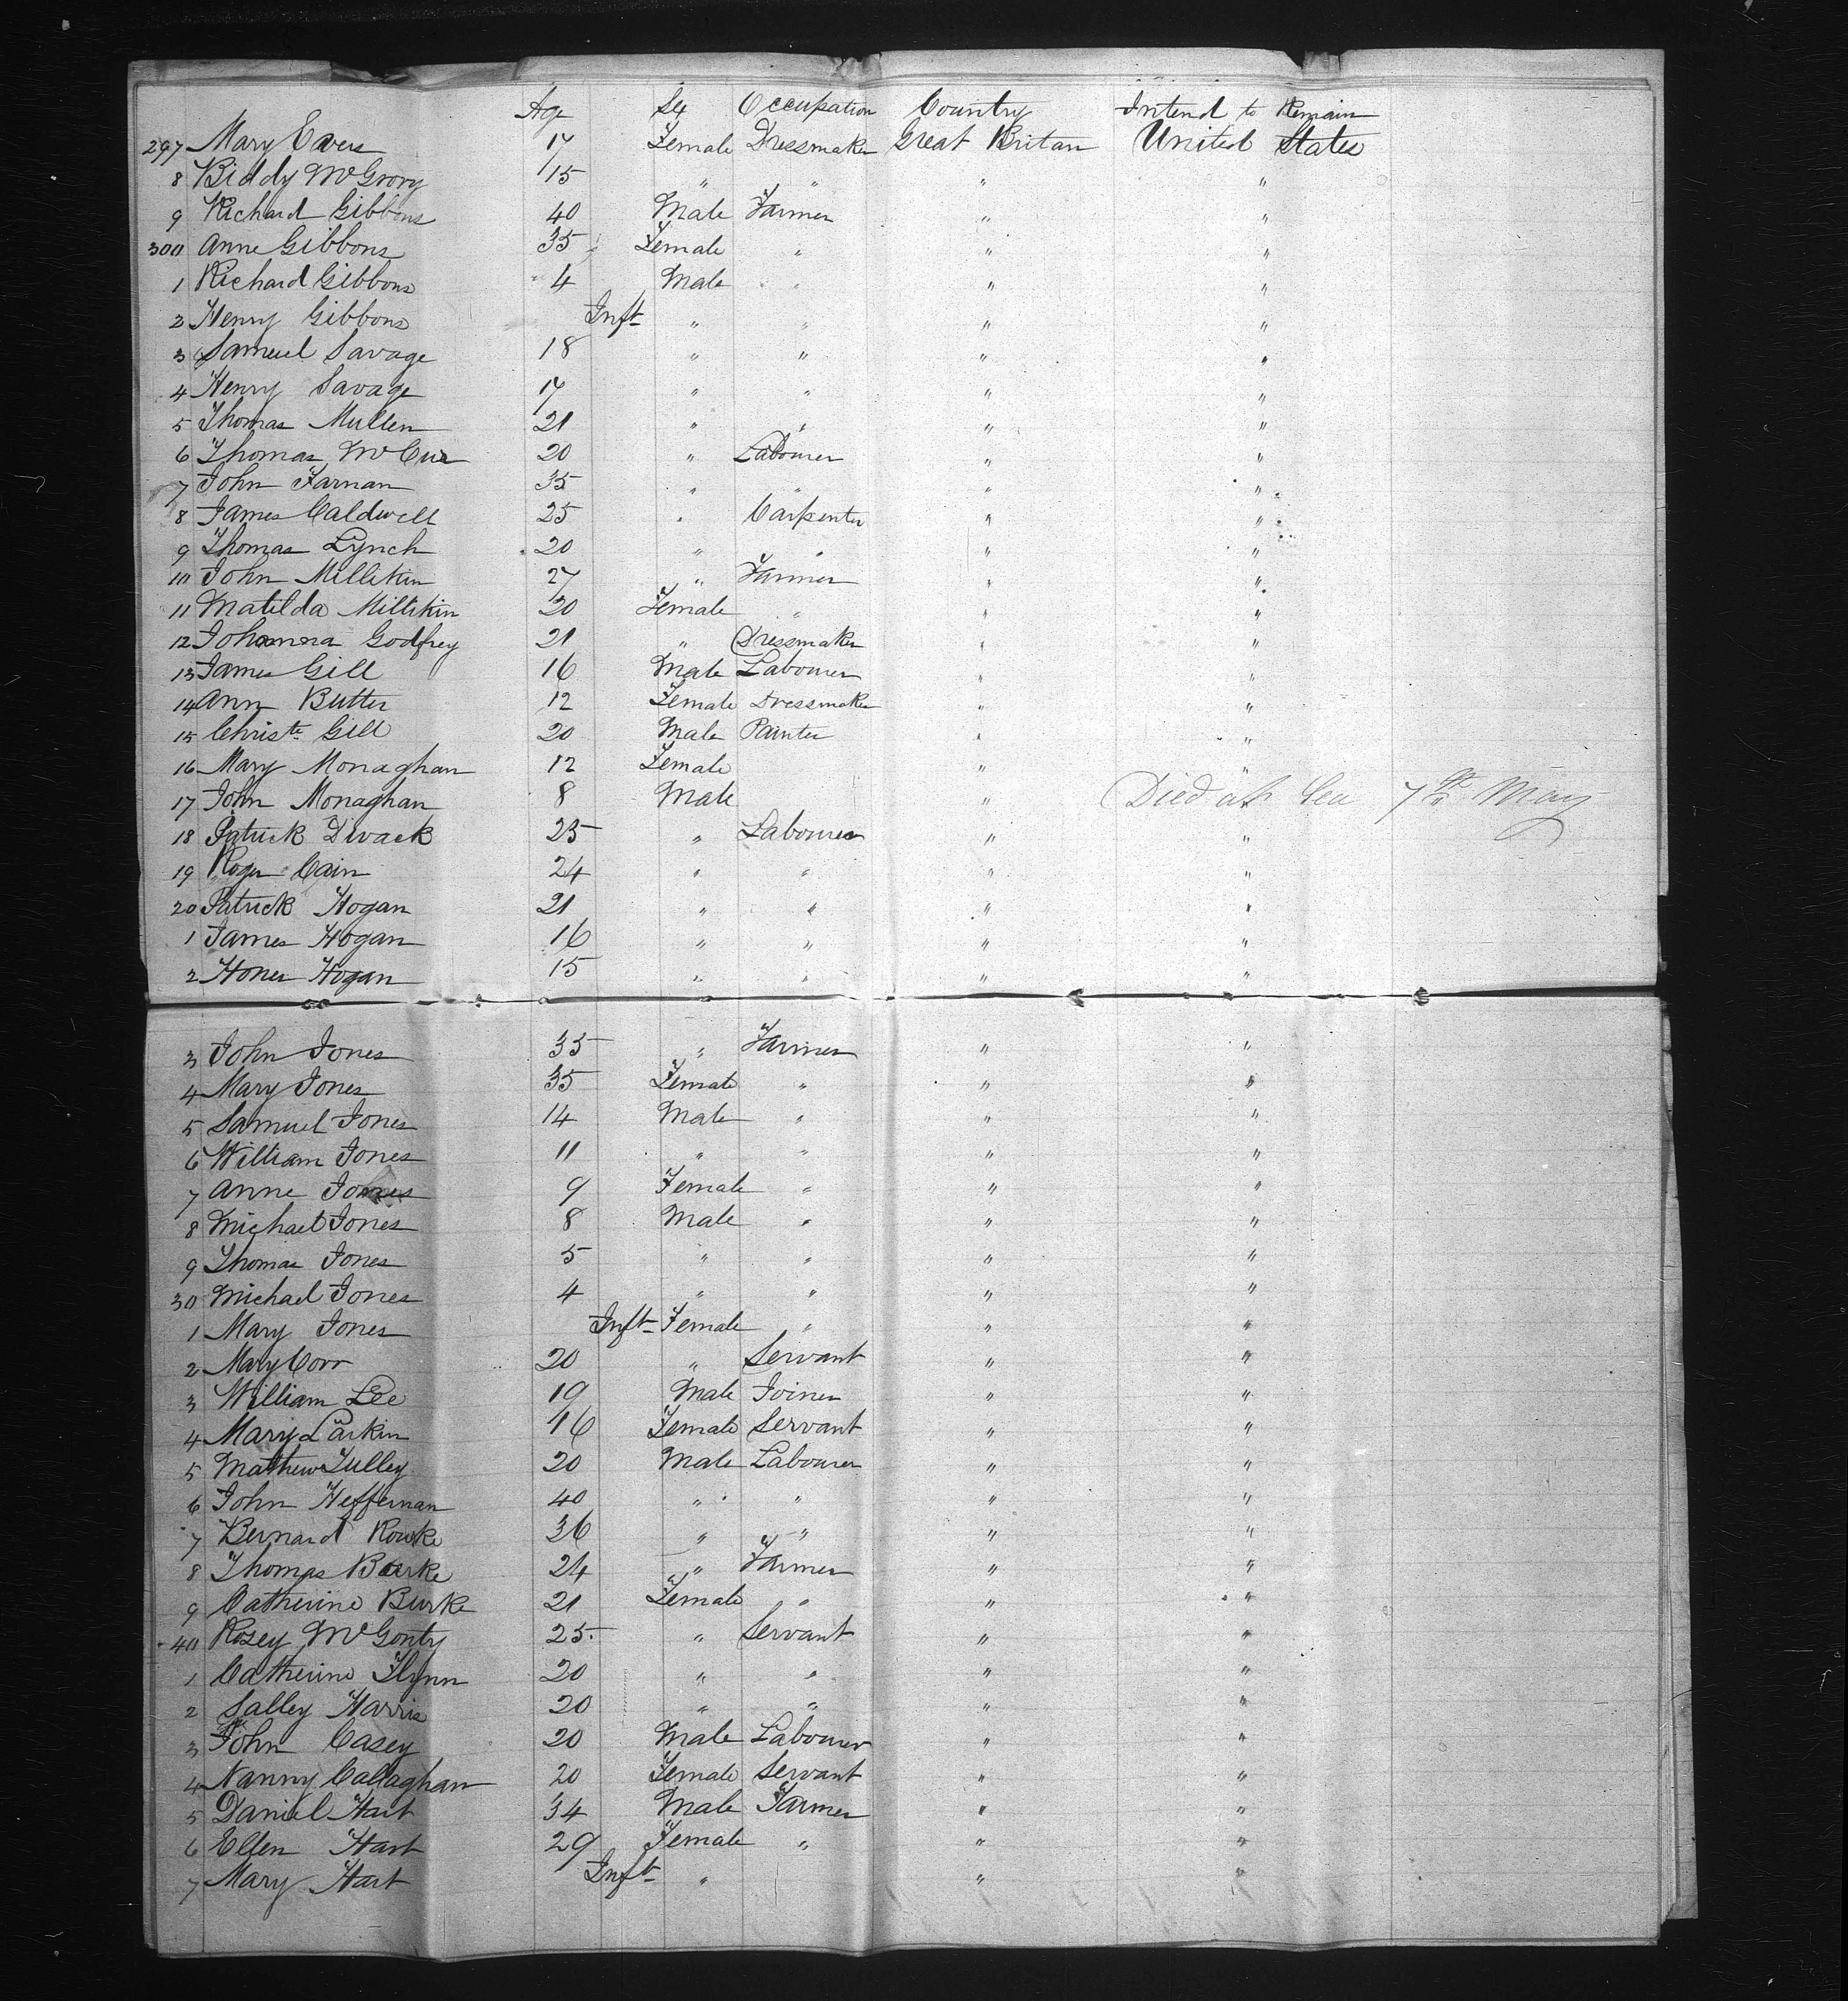 Age Sex Occupation Country Intend to Remain
297 Mary Evers 17 Female Dressmaker Great Britan United States
8 Biddy McGrory 15 " " " "
9 Richard Gibbons 40 Male Farmer " "
300 Anne Gibbons 35 Female " " "
1 Richard Gibbons 4 Male " " "
2 Henry Gibbons Inft " " " "
3 Samuel Savage 18 " " " "
4 Henry Savage 17 " " " "
5 Thomas Mullen 21 " " " "
6 Thomas McCue 20 " Labourer " "
7 John Farnan 35 " " " "
8 James Caldwell 25 " Carpenter " "
9 Thomas Lynch 20 " " " "
10 John Millikin 27 " Farmer " "
11 Matilda Millikin 20 Female " " "
12 Johanna Godfrey 21 " Dressmaker " "
13 James Gill 16 Male Labourer " "
14 Ann Butter 12 Female Dressmaker " "
15 Christr Gill 20 Male Painter " "
16 Mary Monaghan 12 Female " "
17 John Monaghan 8 Male " Died at Sea 7th May
18 Patrick Divack 25 " Labourer " "
19 Roger Cain 24 " " " "
20 Patrick Hogan 21 " " " "
1 James Hogan 16 " " " "
2 Honer Hogan 15 " " " "
3 John Jones 35 " Farmer " "
4 Mary Jones 35 Female " " "
5 Samuel Jones 14 Male " " "
6 William Jones 11 " " " "
7 Anne Jones 9 Female " " "
8 Michael Jones 8 Male " " "
9 Thomas Jones 5 " " " "
30 Michael Jones 4 " " " "
1 Mary Jones Inft Female " " "
2 Mary Corr 20 " Servant " "
3 William Lee 19 Male Joiner " "
4 Mary Larkin 16 Female Servant " "
5 Mathew Tulley 20 Male Labourer " "
6 John Heffernan 40 " " " "
7 Bernard Rourke 36 " " " "
8 Thomas Burke 24 " Farmer " "
9 Catherine Burke 21 Female " " "
40 Rosey McGonty 25 " Servant " "
1 Catherine Flynn 20 " " " "
2 Salley Harris 20 " " " "
3 John Casey 20 Male Labourer " "
4 Nanny Callaghan 20 Female Servant " "
5 Daniel Hart 34 Male Farmer " "
6 Ellen Hart 29 Female " " "
7 Mary Hart Inft " " "